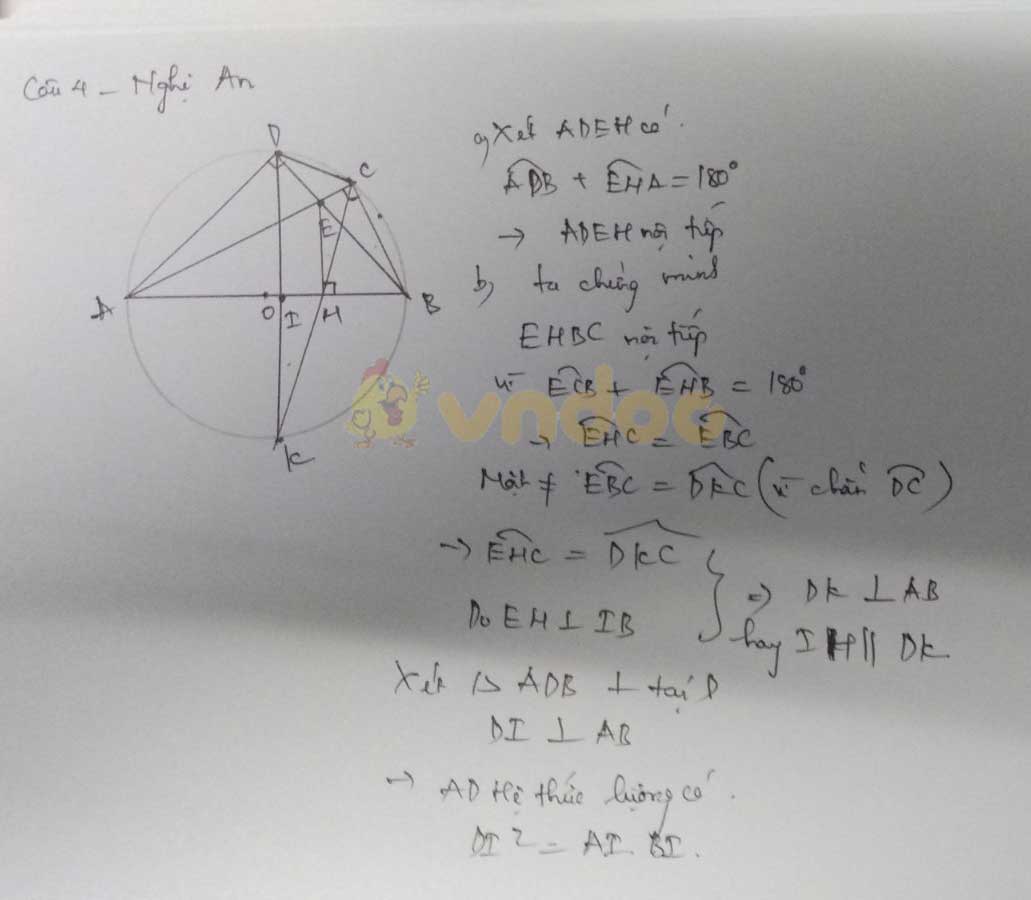 Câu 4 - Nghệ An
D
C
E
A
O
I
H
B
K
a) Xét ADEH có.
ADB + EHA = 180°
→ ADEH nội tiếp
b) ta chứng minh
EHBC nội tiếp
vì ECB + EHB = 180°
vndoc
→ EHC = EBC
Mặt ≠ EBC = DKC (vì chắn DC)
→ EHC = DKC
Do EH ⊥ IB
} => DK ⊥ AB
hay IH // DK
Xét △ ADB ⊥ tại D
DI ⊥ AB
→ AD Hệ thức lượng có.
DI² = AI. BI.